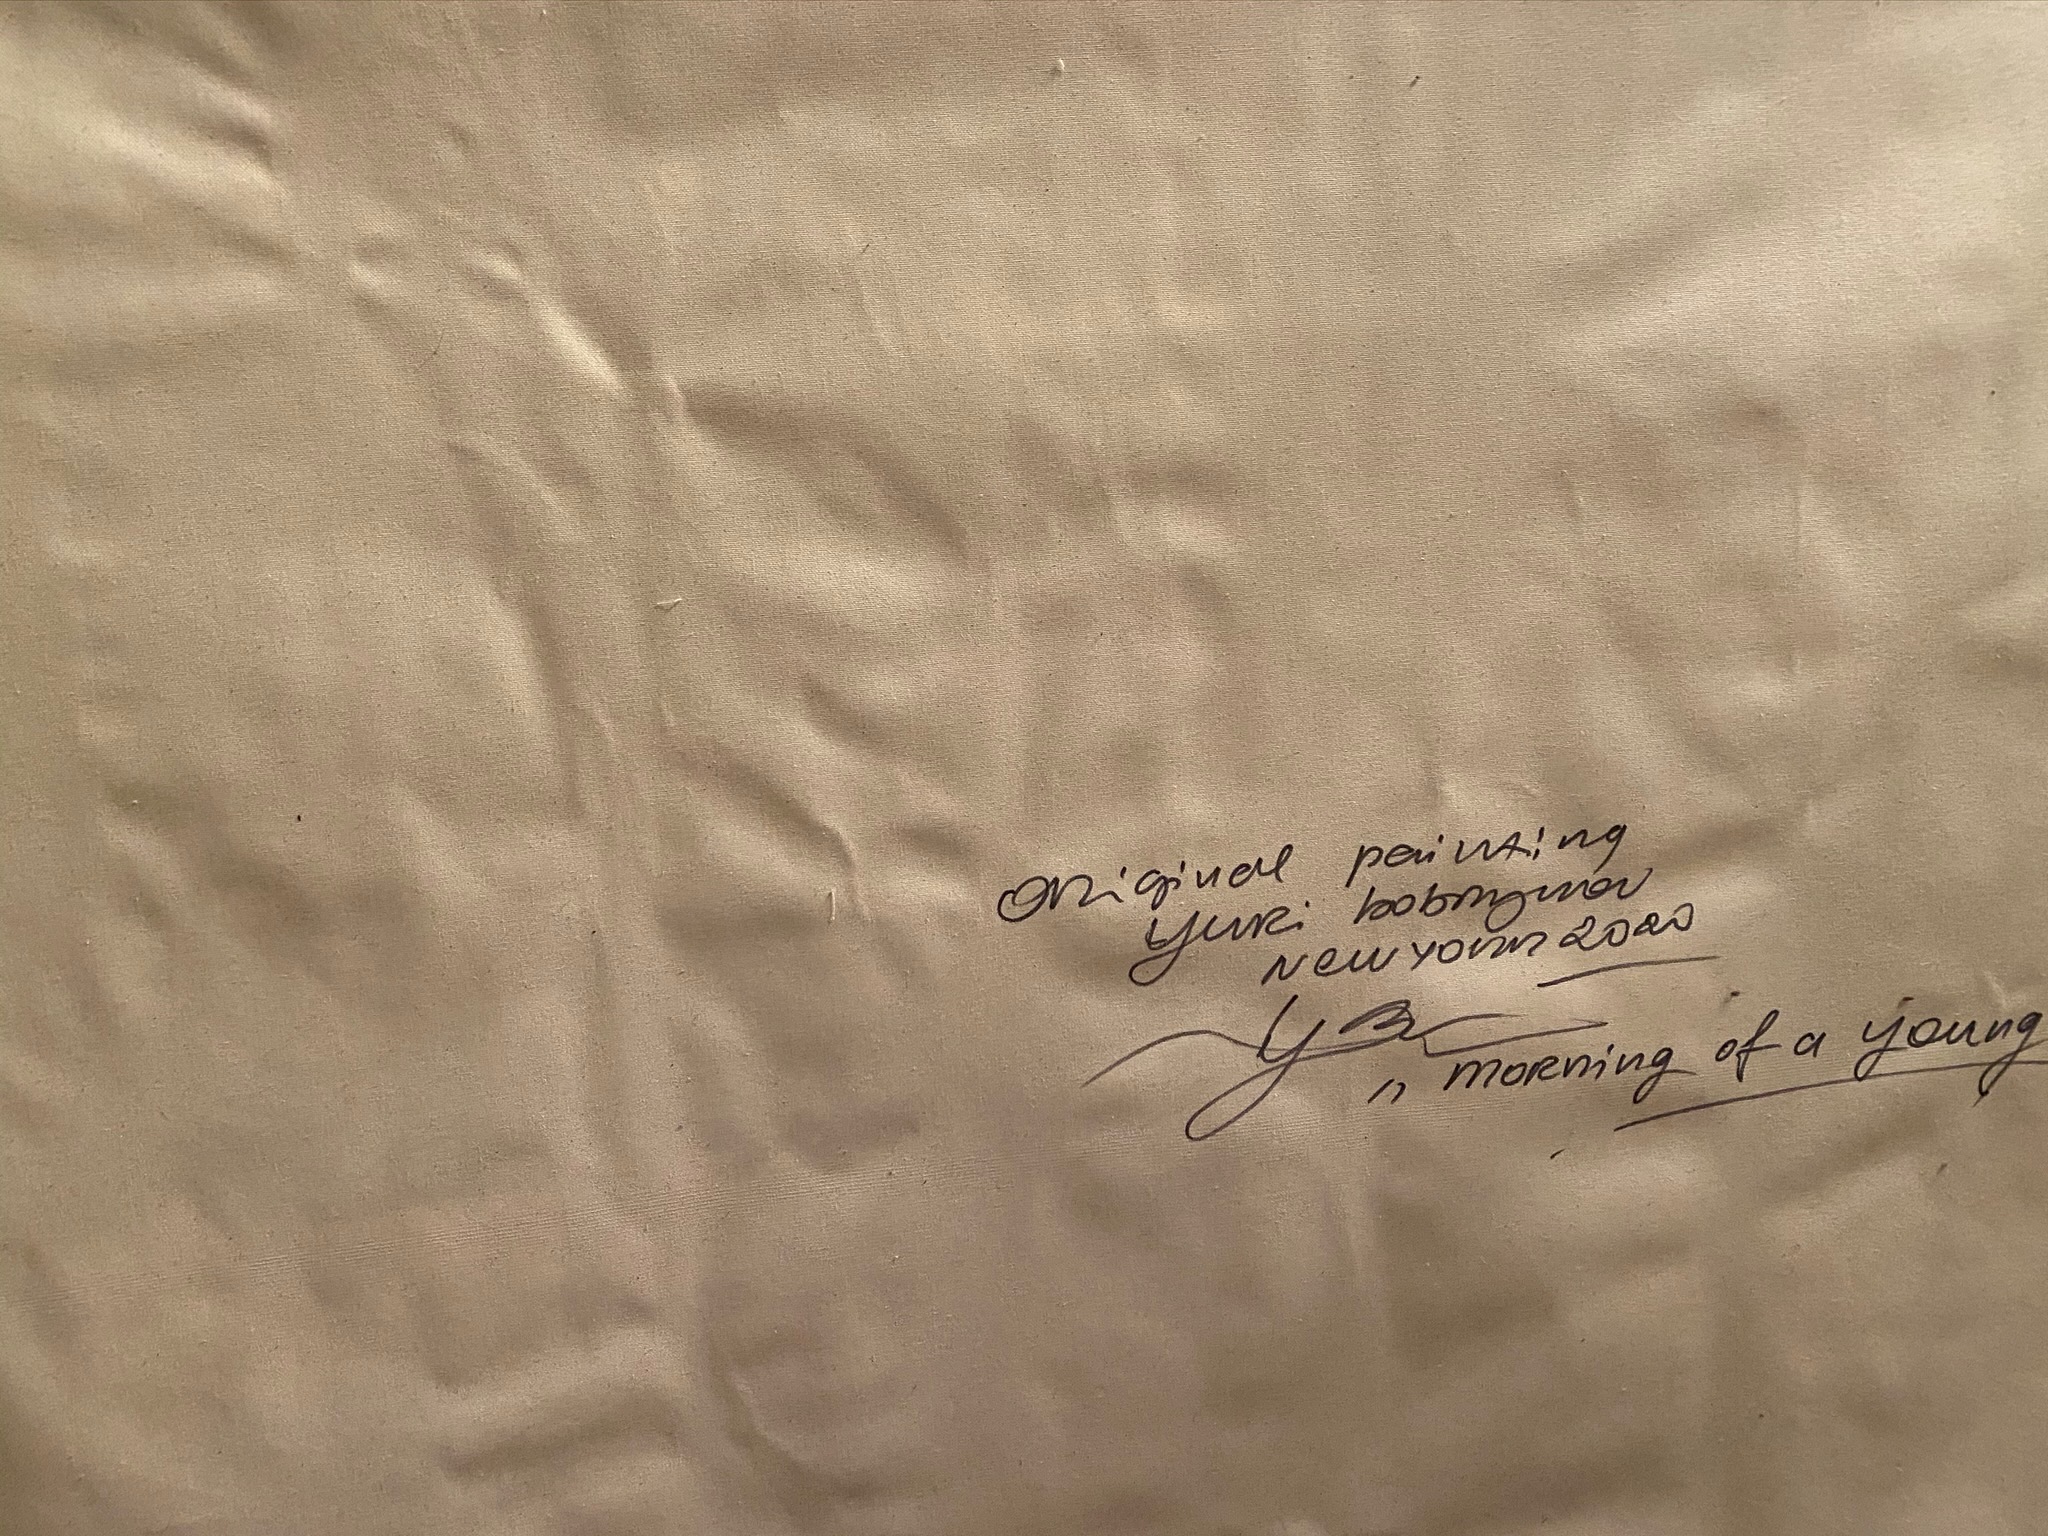 Original painting
Yuri
New York 2020
„ morning of a young